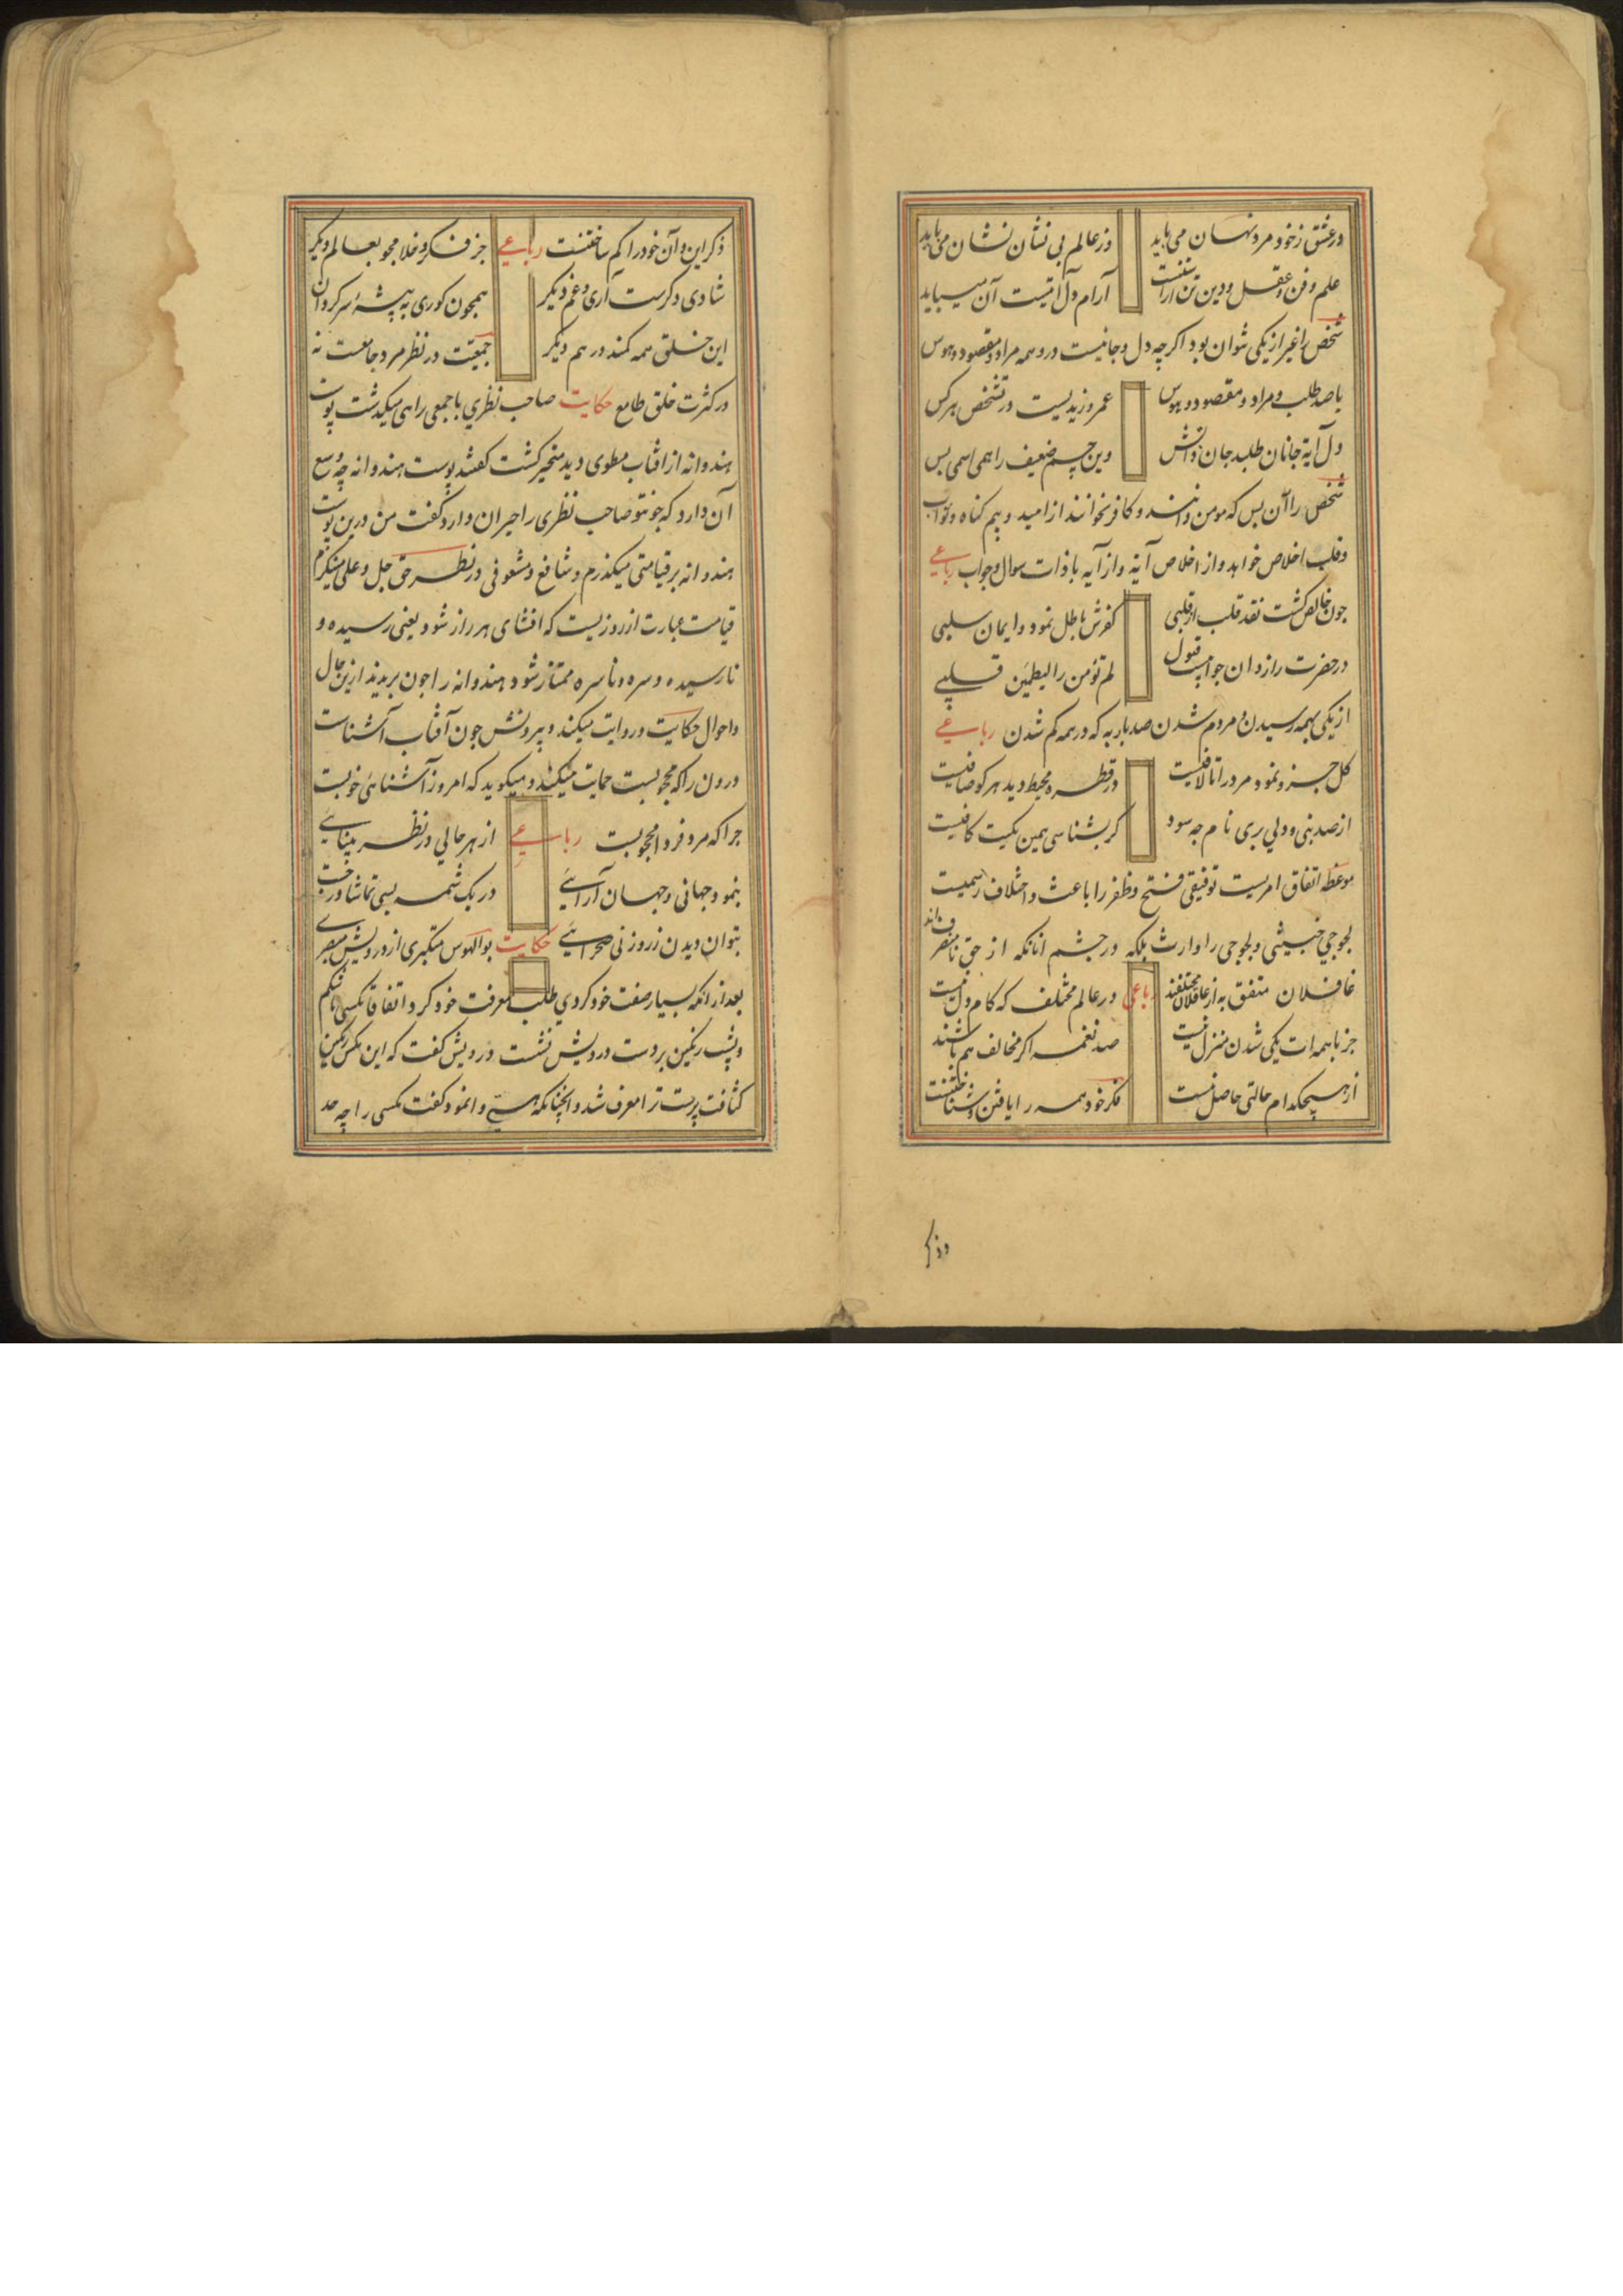 در عشق ز خود مرد نهان می باید وز عالم بی نشان نشان می باید
علم و فن و عقل و دین تن آراست آرام دل آتیست آن میباید
شخص را غیر از یکی نتوان بود اکرچه دل و جانیست در و همه مراد و مقصود و هوس
با صد طلب و مراد و مقصود و هوس عمرو زیدیست در تشخص هر کس
دل آیة جانان طلبد جان دانش وین جسم ضعیف را همی اسمی بس
شخص را آن بس که مومن دانند و کافر نخوانند از امید و بیم کناه و ثواب
و قلب اخلاص خواهد و از اخلاص آینه و از آیه با ذات سوال و جواب رباعی
جون خالص کشت نقد قلب از قلبی کفرش باطل نمود و ایمان سلبی
در حضرت رازدان جوابست قبول لم تؤمن را لیطمئن قلبی
از یکی بهمه رسیدن و مردم شدن صد بار به که در همه کم شدن رباعی
کل جزو نمود مرد را تا لافیست در قطره محیط دید هر کو صافیست
از صد نبی و ولی بری نام چه سود کر بشناسی همین یکیت کافیست
موعظه اتفاق امریست توفیقی فتح و ظفر را باعث و اختلاف رسمیست
لجوجی خبیثی و لجوجی را وارث بلکه در چشم آنانکه از حق نامنصرف اند
غافلان متفق به از عاقلان مختلفند رباعی در عالم مختلف که کام دل نیست
جز با همه ات یکی شدن منزل نیست صد نغمه اکر مخالف هم باشند
از هیچکدام حالتی حاصل نیست فکر خود همه را یافتن و شناختنست
و ذکر
ذکر این و آن خود را کم ساختنست رباعی جز فکر و خلا مجو بعالم دیکر
شادی دکرست آری و غم دیکر همچون کوری به بیشهٔ سرکردان
این خلق همه کمند در هم دیکر جمعیت در نظر مرد جامعست نه
در کثرت خلق طامع حکایت صاحب نظری با جمعی راهی میکذشت پوست
هندوانه از افتاب مطوی دید متحیر کشت کفتند پوست هندوانه چه وسع
آن دارد که جو تو صاحب نظری را حیران دارد کفت من درین پوست
هندوانه بر قیامتی میکذرم و شافع و مشعوفی در نظر حق جل و علی مینکرم
قیامت عبارت از روزیست که افشای هر راز شود یعنی رسیده و
نارسیده و سره و ناسره ممتاز شود هندوانه را جون بریدند ازین حال
و احوال حکایت و روایت میکند و بیرونش جون آفتاب آشناست
درون را که محجوبست حمایت میکند و میکوید که امروز آشنائی خوبست
جرا که مرد فردا محجوبست رباعی از هر حالی در نظر بینائی
بنمود جهانی و جهان آرائی در یک شمه بسی تماشا درجست
بتوان دیدن ز روزنی صحرائی حکایت بوالهوس متکبری از درویش مبصری
بعد از انکه بسیار صفت خود کردی طلب معرفت خود کرد اتفاقا مکسی با شکم
و پشت رنکین بر دست درویش نشست درویش کفت که این مکس رنکین
کثافت پرست ترا معرف شد و انچنانکه هستی وا نمود کفت مکسی را چه حد